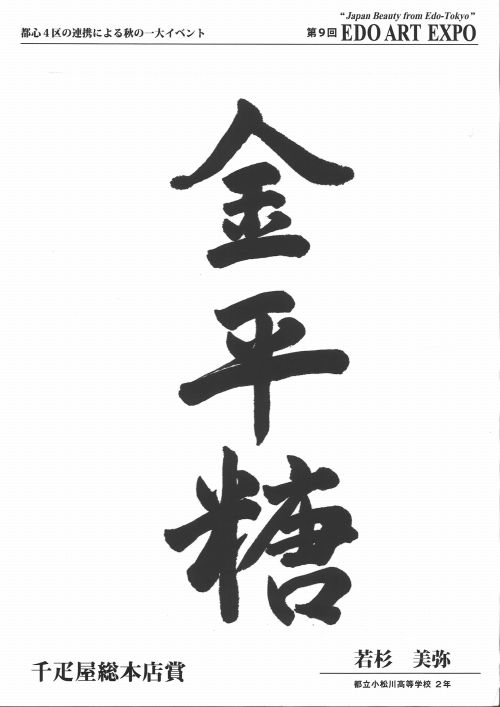 都心4区の連携による秋の一大イベント
“Japan Beauty from Edo-Tokyo”
第9回 EDO ART EXPO
金平糖
千疋屋総本店賞
若杉 美弥
都立小松川高等学校 2年